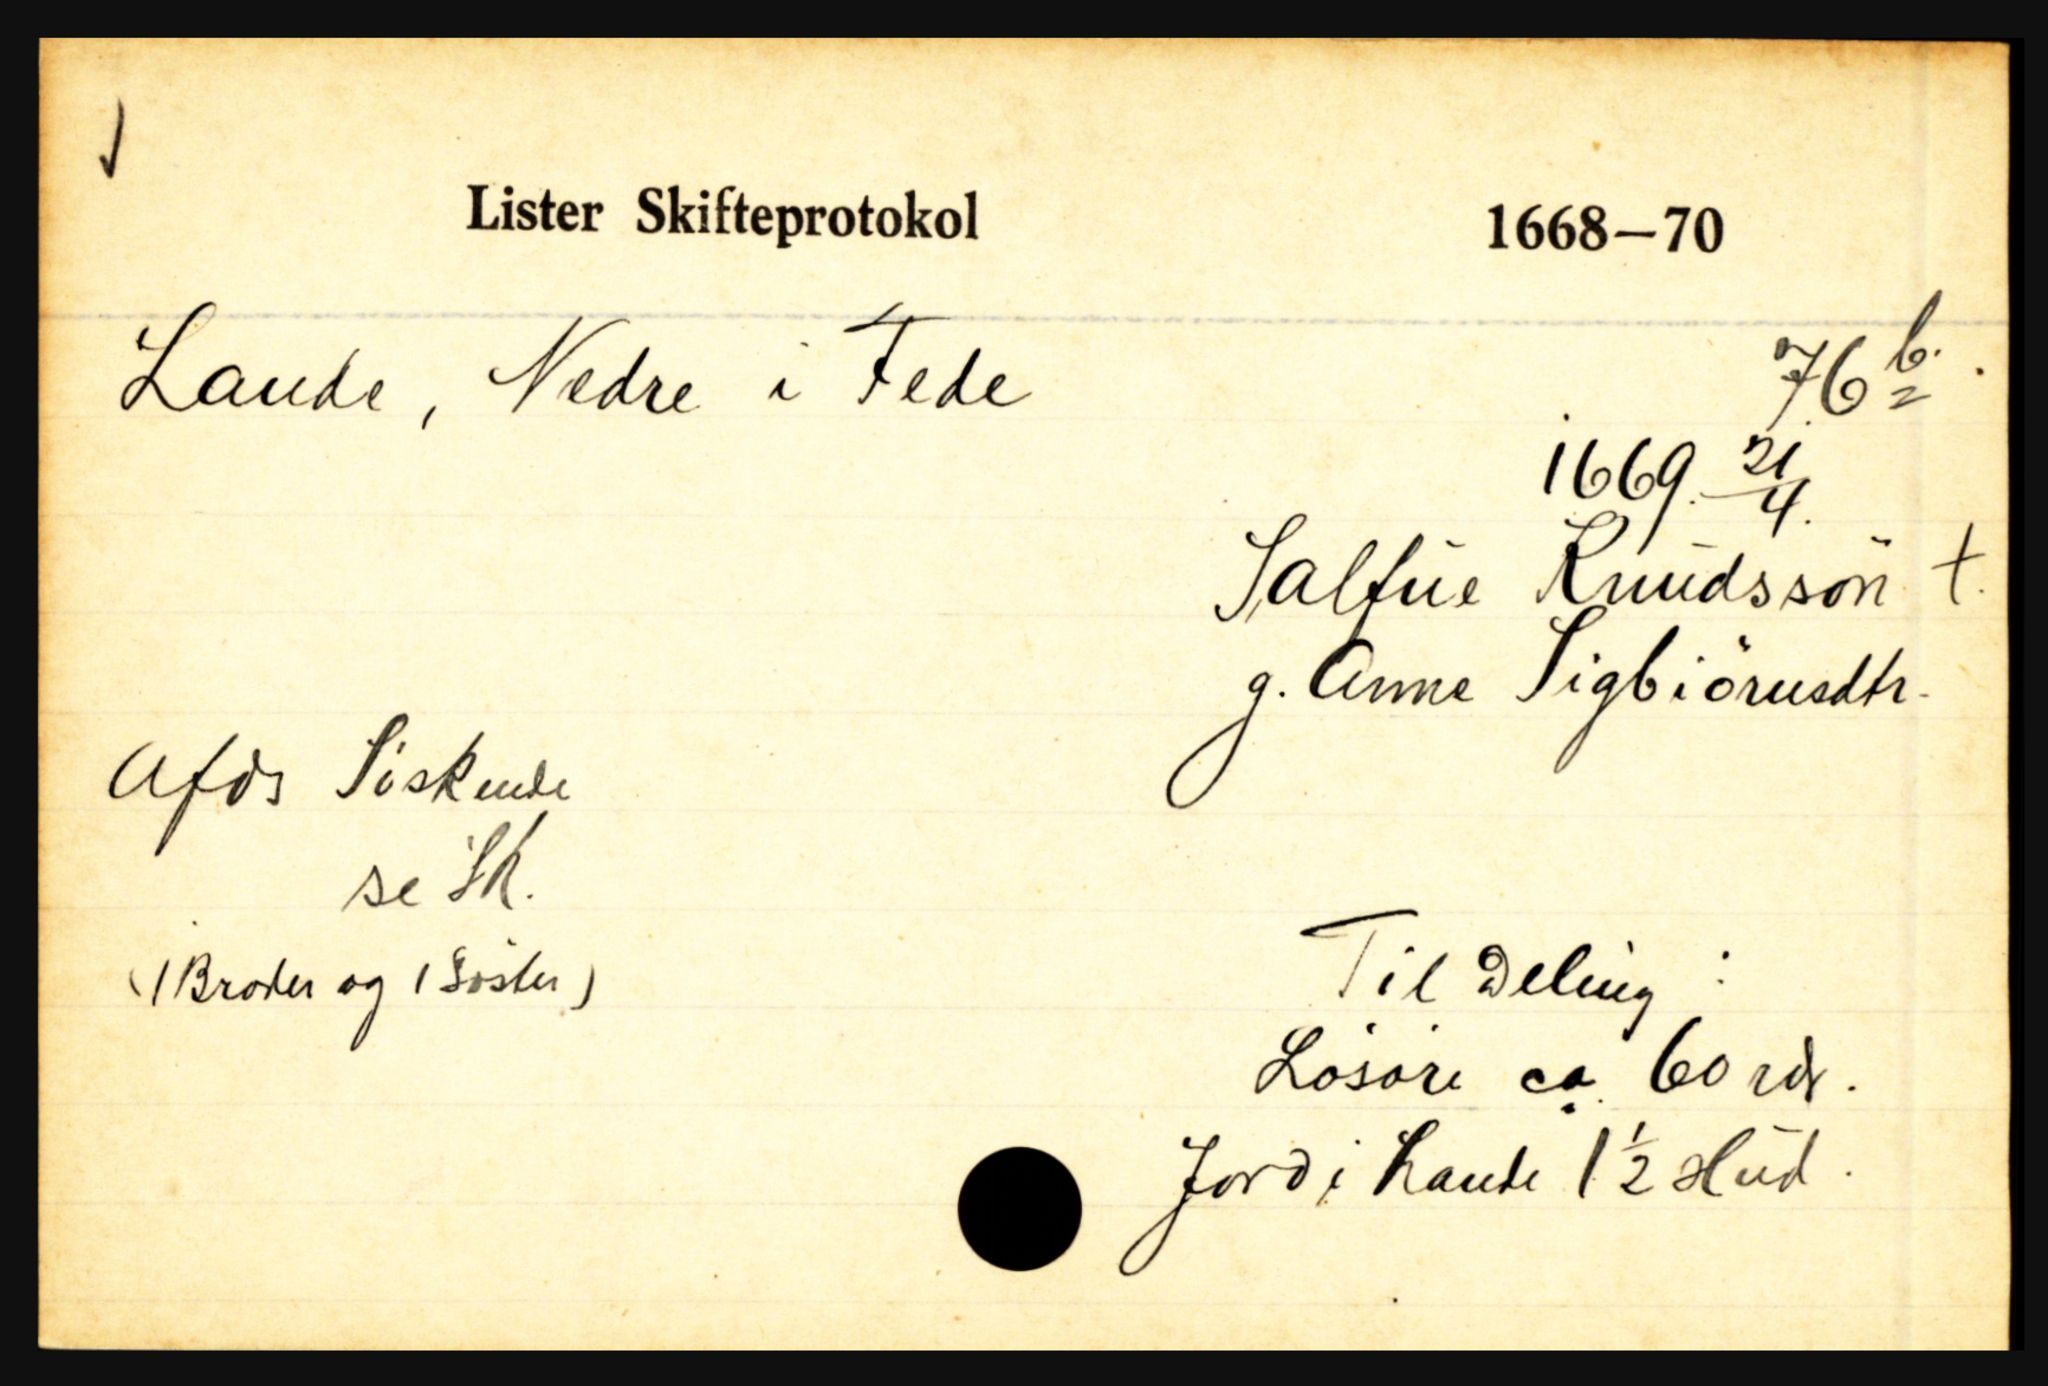 Lister Skifteprotokol 1668–70
Laude, Nedre i Fede 76 b.
1669. 21/4.
Salfue Knudssön †.
g. Anne Sigbiörnsdtr.
Afds Söskende
se Sk.
(1 Broder og 1 Söster)
Til Deling:
Lösöre ca. 60 rdr.
Jord i Laude 1 1/2 Hud.